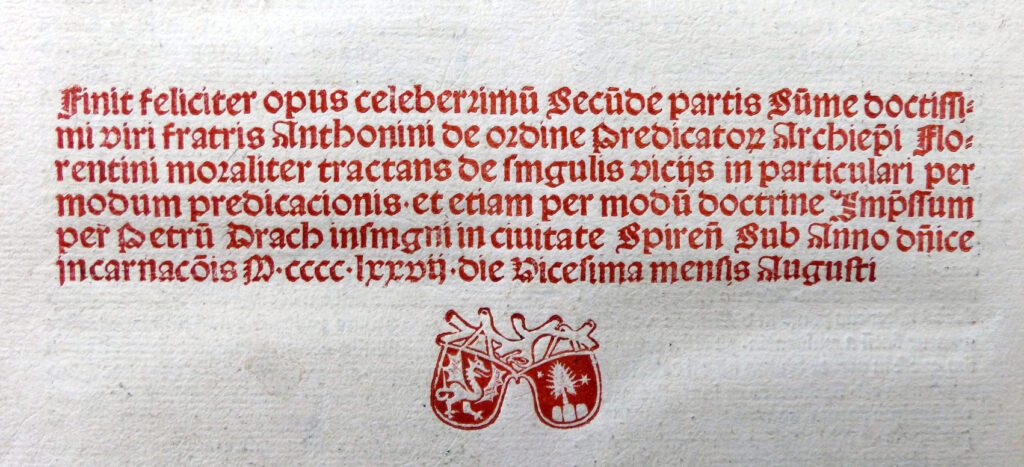 Finit feliciter opus celeberrimū Secūde partis Sūme doctissi⸗
mi viri fratris Anthonini de ordine Predicatoꝝ Archiep̄i Flo⸗
rentini moraliter tractans de singulis vicijs in particulari per
modum predicacionis· et etiam per modū doctrine Imp̄ssum
per Petrū Drach in insigni ciuitate Spireñ Sub Anno dñice
incarnacōis M·cccc·lxxvij·die Vicesima mensis Augusti